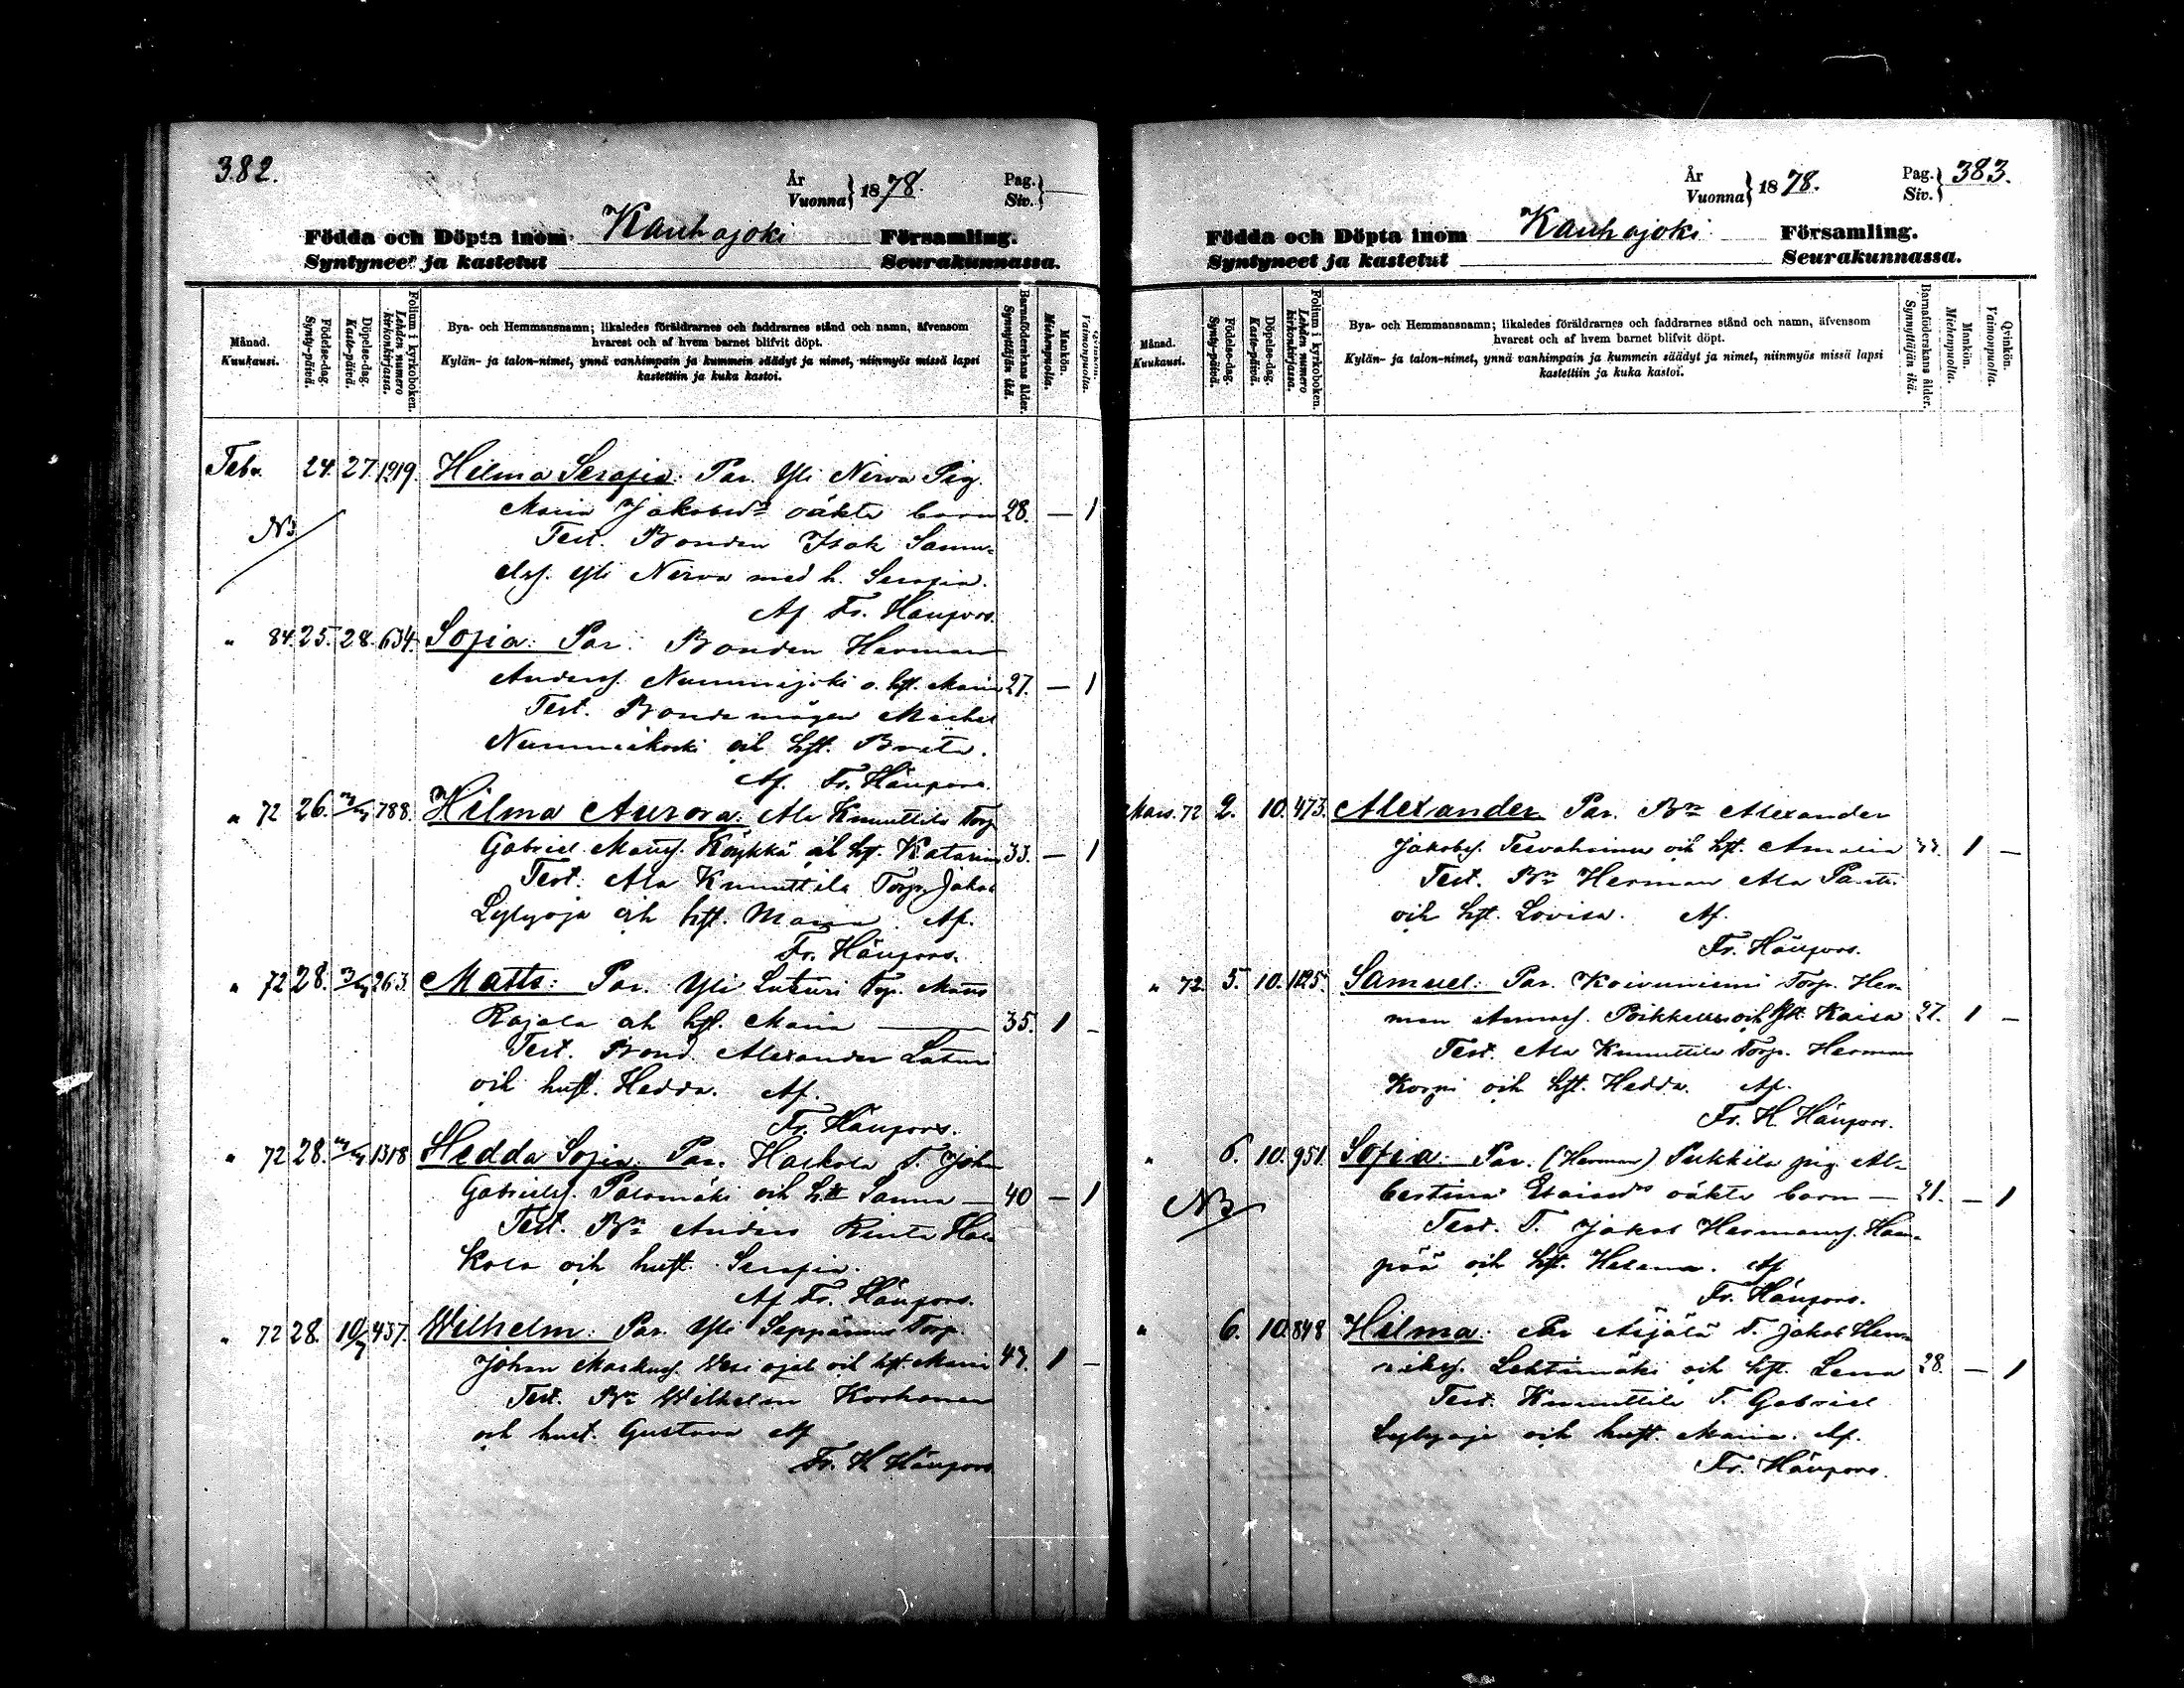 382.
År
Vuonna } 1878.
Pag.
Siv. }
Födda och Döpta inom Kauhajoki Församling.
Syntyneet ja kastetut Seurakunnassa.
Månad.
Kuukausi.
Födelse-dag.
Synty-päivä.
Döpelse-dag.
Kaste-päivä.
Folium i kyrkoboken.
Lehden numero kirkonkirjassa.
Bya- och Hemmansnamn; likaledes föräldrarnes och faddrarnes stånd och namn, äfvensom
hvarest och af hvem barnet blifvit döpt.
Kylän- ja talon-nimet, ynnä vanhimpain ja kummein säädyt ja nimet, niinmyös missä lapsi
kastettiin ja kuka kastoi.
Barnaföderskans ålder.
Synnyttäjän ikä.
Mankön.
Miehenpuolia.
Qvinkön.
Vaimonpuolia.
Febr. 24. 27. 1219. Hilma Serafia: Par. Yli Nirva Pig.
Maria Jakobsdr oäkta barn 28. — 1
NB
Test. Bonden Isak Samu-
elss. Yli Nirva med h. Serafia.
Af Fr. Hänfors.
" 84. 25. 28. 634. Sofia: Par. Bonden Herman
Anderss. Nummijoki o. hst. Maria 27. — 1
Test. Bonde mågen Michel
Nummikoski och hst. Brita.
Af. Fr. Hänfors.
" 72 26. 788. Hilma Aurora: Ala Knuuttila Torp.
Gabriel Matts. Köykkä och hst. Katarina 33. — 1
Test. Ala Knuuttila Torp. Jakob
Lylyoja och hst. Maria. Af.
Fr. Hänfors.
" 72 28. 263. Matts: Par. Yli Luturi Torp. Matts
Rajala och hst. Maria — 35. 1 -
Test. Bond. Alexander Luturi
och hust. Hedda. Af.
Fr. Hänfors.
" 72 28. 1318 Hedda Sofia. Par. Harkola T. Joh.
Gabrielss. Palomäki och hst Sanna — 40 — 1
Test. Bn Anders Rinta Har
kola och hust. Serafia.
Af Fr. Hänfors.
" 72 28. 10/3 437. Wilhelm: Par. Yli Seppänen Torp.
Johan Markuss. Vesi ojal. och hst. Maria 43. 1 -
Test. Bn Wilhelm Korhonen
och hust. Gustava Af
Fr. H Hänfors
År
Vuonna } 1878.
Pag.
Siv. } 383.
Födda och Döpta inom Kauhajoki Församling.
Syntyneet ja kastetut Seurakunnassa.
Månad.
Kuukausi.
Födelse-dag.
Synty-päivä.
Döpelse-dag.
Kaste-päivä.
Folium i kyrkoboken.
Lehden numero kirkonkirjassa.
Bya- och Hemmansnamn; likaledes föräldrarnes och faddrarnes stånd och namn, äfvensom
hvarest och af hvem barnet blifvit döpt.
Kylän- ja talon-nimet, ynnä vanhimpain ja kummein säädyt ja nimet, niinmyös missä lapsi
kastettiin ja kuka kastoi.
Barnaföderskans ålder.
Synnyttäjän ikä.
Mankön.
Miehenpuolia.
Qvinkön.
Vaimonpuolia.
Mars. 72 2. 10. 473. Alexander Par. Bn Alexander
Jakobss. och hst. Amalia 1 —
Test. Bn Herman Ala Pantti
och hst. Lovisa. Af.
Fr. Hänfors.
" 72. 5. 10. 1125. Samuel: Par. Koivuniemi Torp. Her-
man och hst. Kaisa 27. 1 —
Test. Ala Knuuttila Torp. Herman
Korpi och hst. Hedda. Af.
Fr. H. Hänfors.
" 6. 10. 951. Sofia: Par. (Herman) Pukkila pig. Al-
bertina Esaiasdr oäkta barn — 21. — 1
NB
Test. T. Jakob Hermanss. Haa-
pää och hst. Helena. Af
Fr. Hänfors.
" 6. 10. 848 Hilma: Par Äijälä T. Jakob Hen-
rikss. Lehtimäki och hst. Lena 28. — 1
Test. Knuuttila T. Gabriel
Lylyoja och hust. Maria. Af.
Fr. Hänfors.